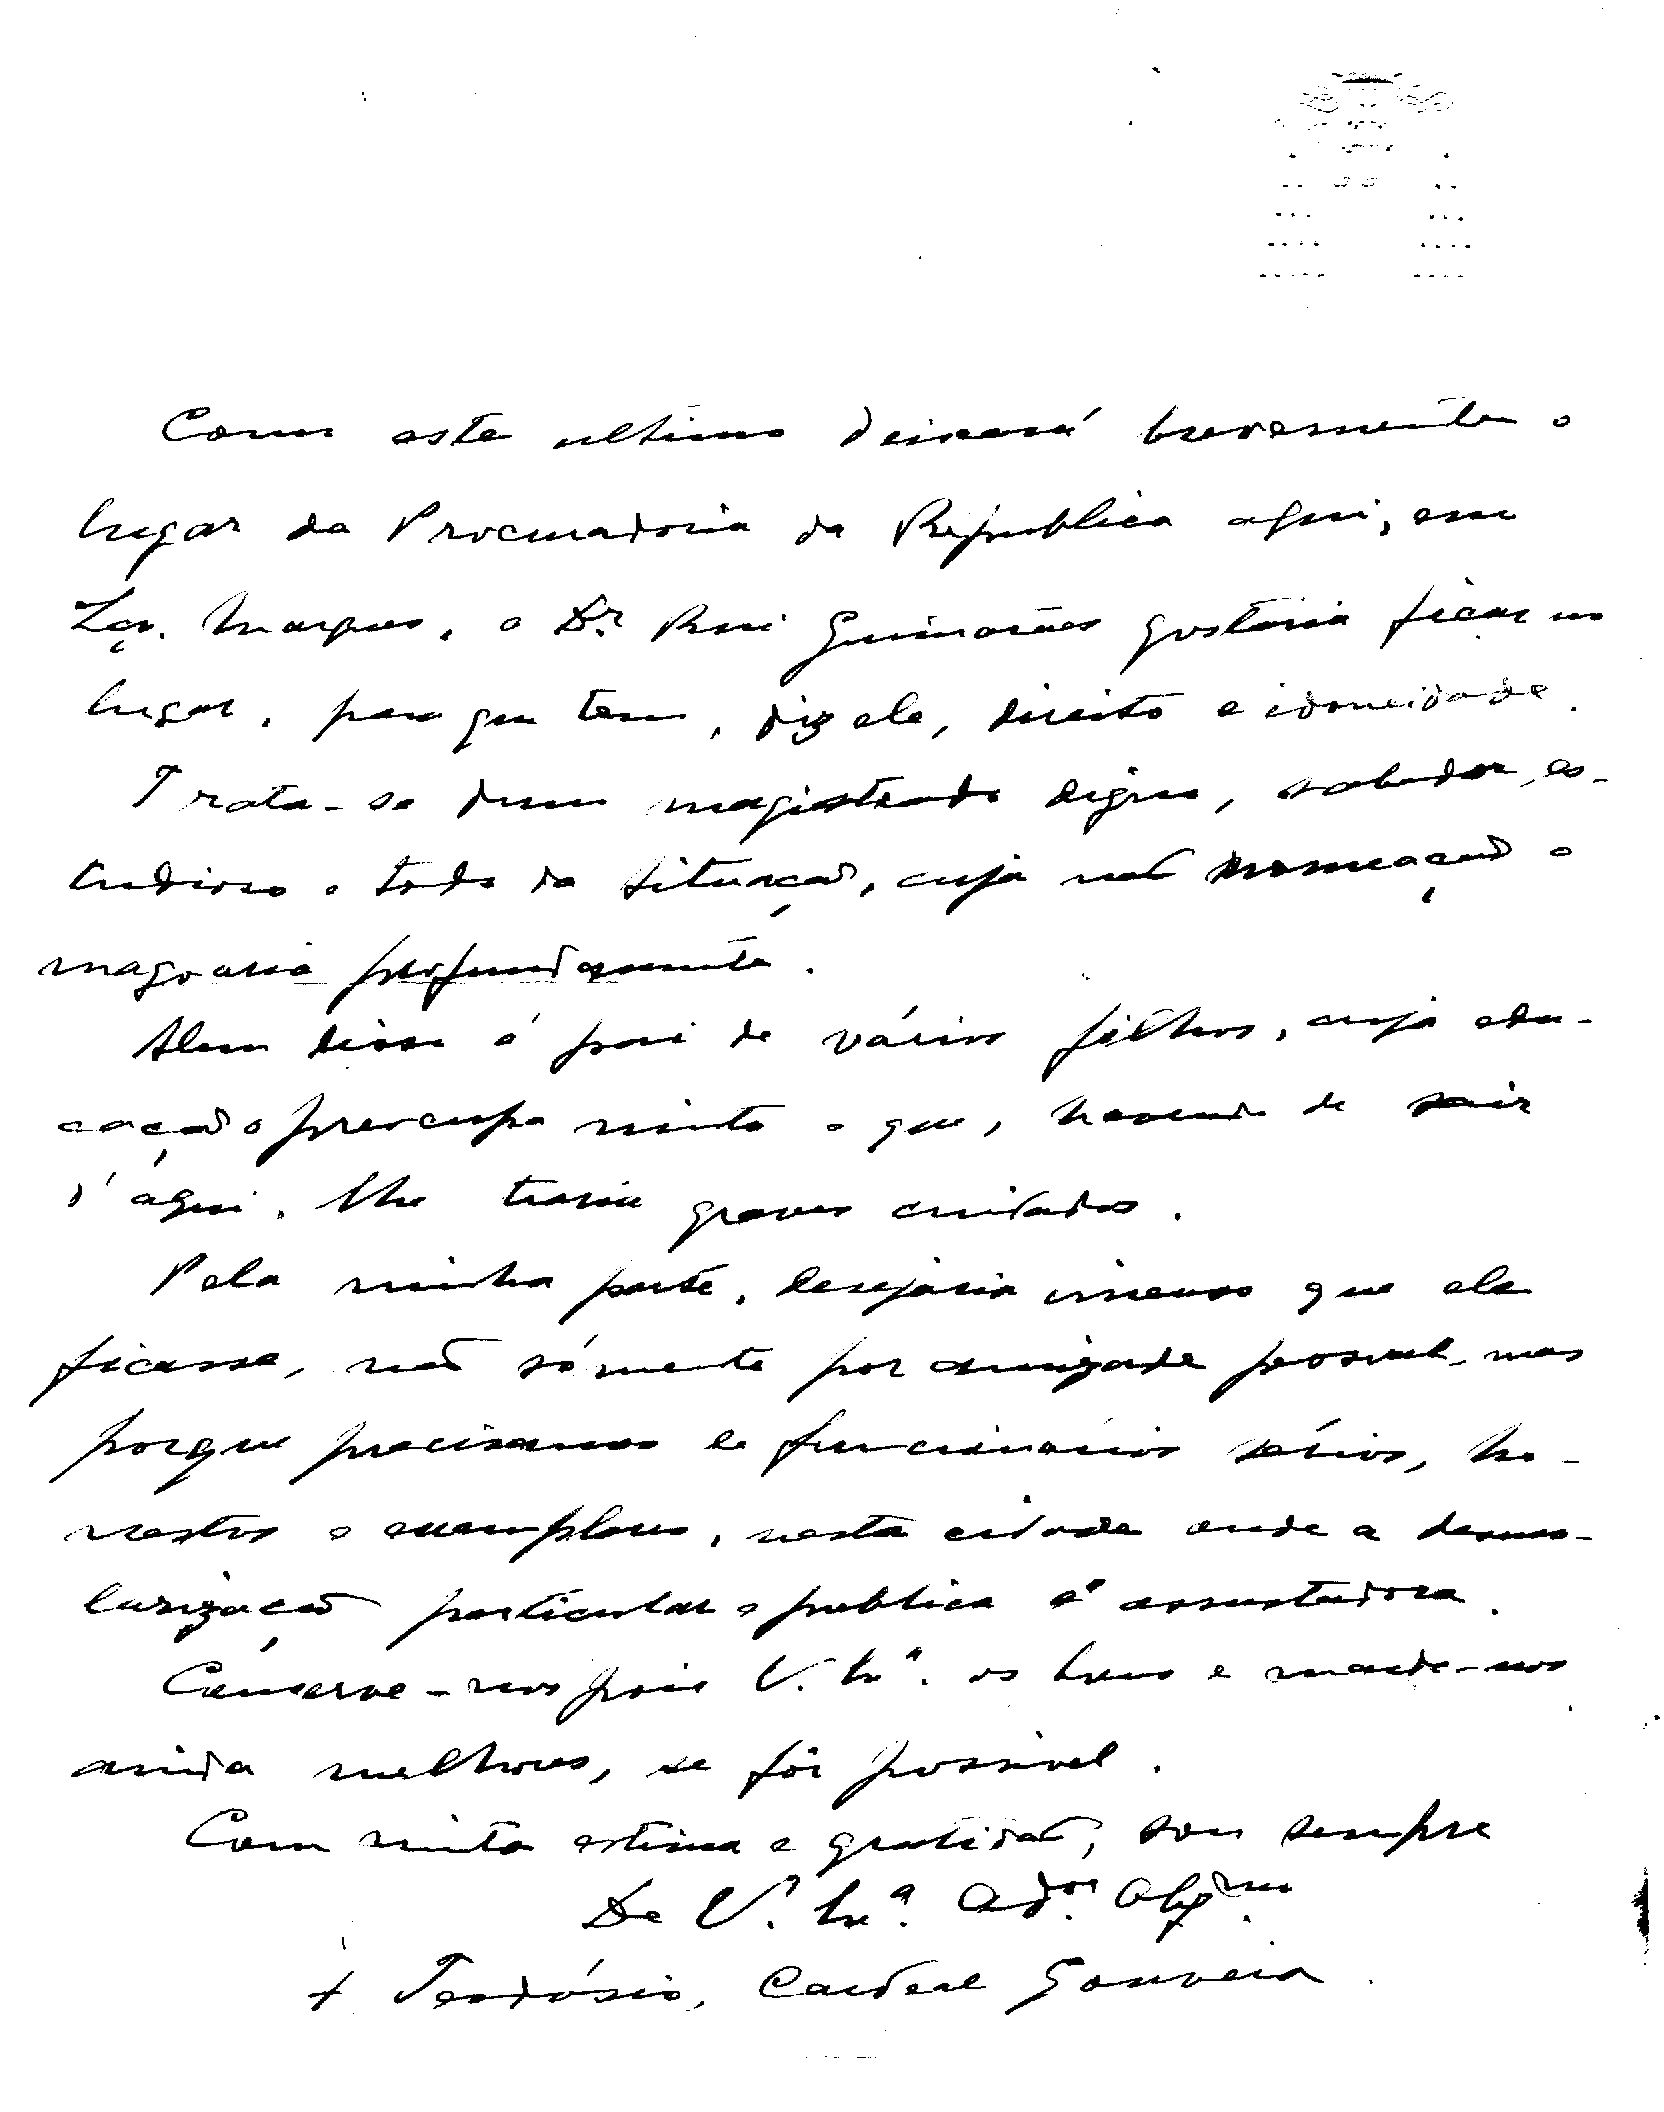 Como este ultimo deixará brevemente o
lugar da Procuradoria da Republica aqui, em
Lço. Marques, o Dr. Rui Guimarães gostaria ficar no
lugar, para que tem, diz ele, direito e idoneidade.
Trata-se dum magistrado digno, sabedor, es-
tudioso e todo da situação, cuja não nomeação o
magoaria profundamente.
Alem disso é pai de vários filhos, cuja edu-
cação o preocupa muito e que, havendo de sair
d'aqui, lhe traria graves cuidados.
Pela minha parte, desejaria imenso que ele
ficasse, não sómente por amizade pessoal, mas
porque precisamos de funcionários sérios, ho-
nestos e exemplares, nesta cidade onde a desmo-
ralização particular e publica é assustadora.
Conserve-nos pois V. Exª. os bons e mande-nos
ainda melhores, se fôr possivel.
Com muita estima e gratidão, sou sempre
De V. Exª. Ador. Obgmo
+ Teodósio, Cardeal Gouveia.